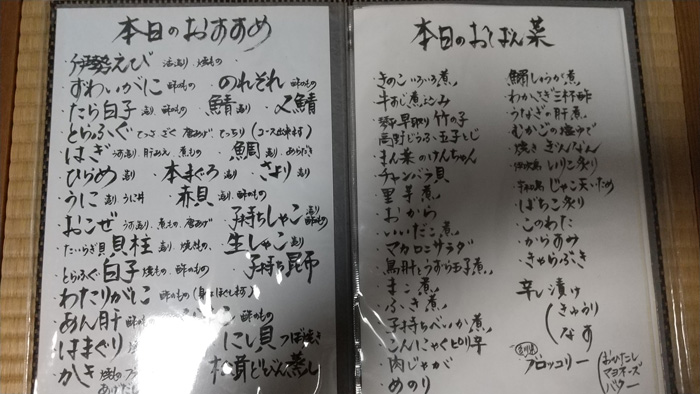 本日のおすすめ
・伊勢えび 活造り、焼もの
・ずわいがに 酢のもの のれそれ 酢のもの
・たら白子 造り、酢のもの ・鯖 造り 〆鯖
・とらふぐ てっさ 唐あげ、てっちり (コース出来 )
・はぎ 造り 肝あえ 煮もの ・鯛 造り、あらだき
・ひらめ 造り ・本まぐろ 造り ・さより 造り
・うに 造り、うに丼 ・赤貝 造り、酢のもの
・おこぜ 造り、煮もの、唐あげ ・子持ちしゃこ 造り 酢のもの
・たいらぎ貝 貝柱 造り、焼もの ・生しゃこ 造り
・とらふぐ白子 焼もの、酢のもの ・子持ち昆布
・わたりがに 酢のもの
・あん肝 酢のもの 酢のもの
・はまぐり ・にし貝 つぼ焼き
・かき ・松茸どびん蒸し
本日のおばん菜
・きのこいろいろ煮
・牛すじ煮込み
早取り竹の子
・高野どうふ玉子とじ
・まん菜のけんちゃん
・チャンバラ貝
・里芋煮
・おから
・いいだこ煮
・マカロニサラダ
・鳥肝とうずら玉子煮
・まこ煮
・ふき煮
・子持ちべいか煮
・こんにゃくピリ辛
・肉じゃが
・めのり
・鰯しょうが煮
・わかさぎ三杯酢
・うなぎの肝煮
・むかごの塩ゆで
・焼きぎんなん
いりこ炙り
じゃこ天いため
・ばちこ炙り
・このわた
・からすみ
・きゃらぶき
辛し漬け
(きゅうり
なす
・ブロッコリー (おひたし
マヨネーズ
バター